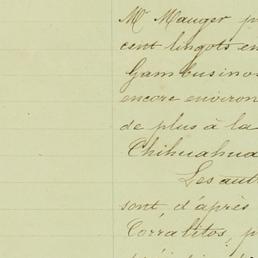 Mr Mauger p
cent lingots en
Gambusinos
encore environ
de plus à la
Chihuahua
Les aut
sont, d'après
Corralitos, p